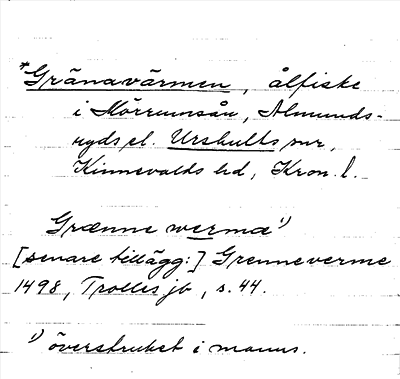 *Gränavärmen, ålfiske
i Mörrumsån, Almunds-
ryds el. Urshults snr,
Kinnevalds hd, Kron. l.
Grænne wermæ¹⁾
[senare tillägg:] Grenneverme
1498, Trolles jb, s. 44.
¹⁾ överstruket i manus.